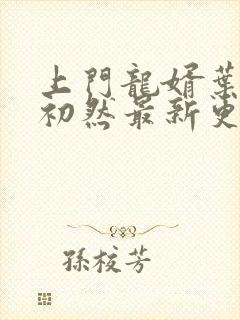 上門龍婿葉
初然最新更
孫校芳